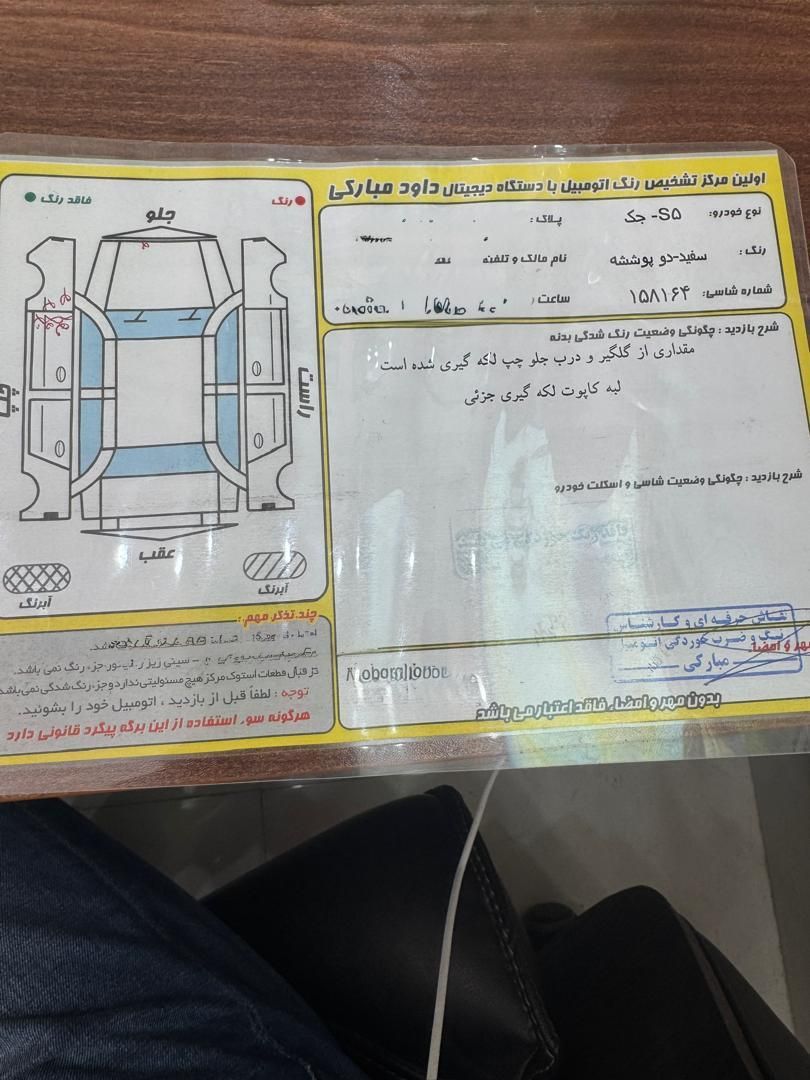 اولین مرکز تشخیص رنگ اتومبیل با دستگاه دیجیتال داود مبارکی
نوع خودرو: S۵- جک
پلاک:
رنگ: سفید-دو پوششه
نام مالک و تلفن
شماره شاسی: ۱۵۸۱۶۴
ساعت
شرح بازدید : چگونگی وضعیت رنگ شدگی بدنه
مقداری از گلگیر و درب جلو چپ لکه گیری شده است
لبه کاپوت لکه گیری جزئی
شرح بازدید : چگونگی وضعیت شاسی و اسکلت خودرو
نقاش حرفه ای و کارشناس
رنگ و ضرب خوردگی
مبارکی
مهر و امضا
بدون مهر و امضاء فاقد اعتبار می باشد
رنگ
فاقد رنگ
جلو
راست
چپ
عقب
آبرنگ
آبرنگ
چند تذکر مهم:
سینی زیر
جزء رنگ نمی باشد.
در قبال قطعات استوک مرکز هیچ مسئولیتی ندارد و جزء رنگ شدگی نمی باشد
توجه : لطفاً قبل از بازدید ، اتومبیل خود را بشوئید.
هرگونه سوء استفاده از این برگه پیگرد قانونی دارد